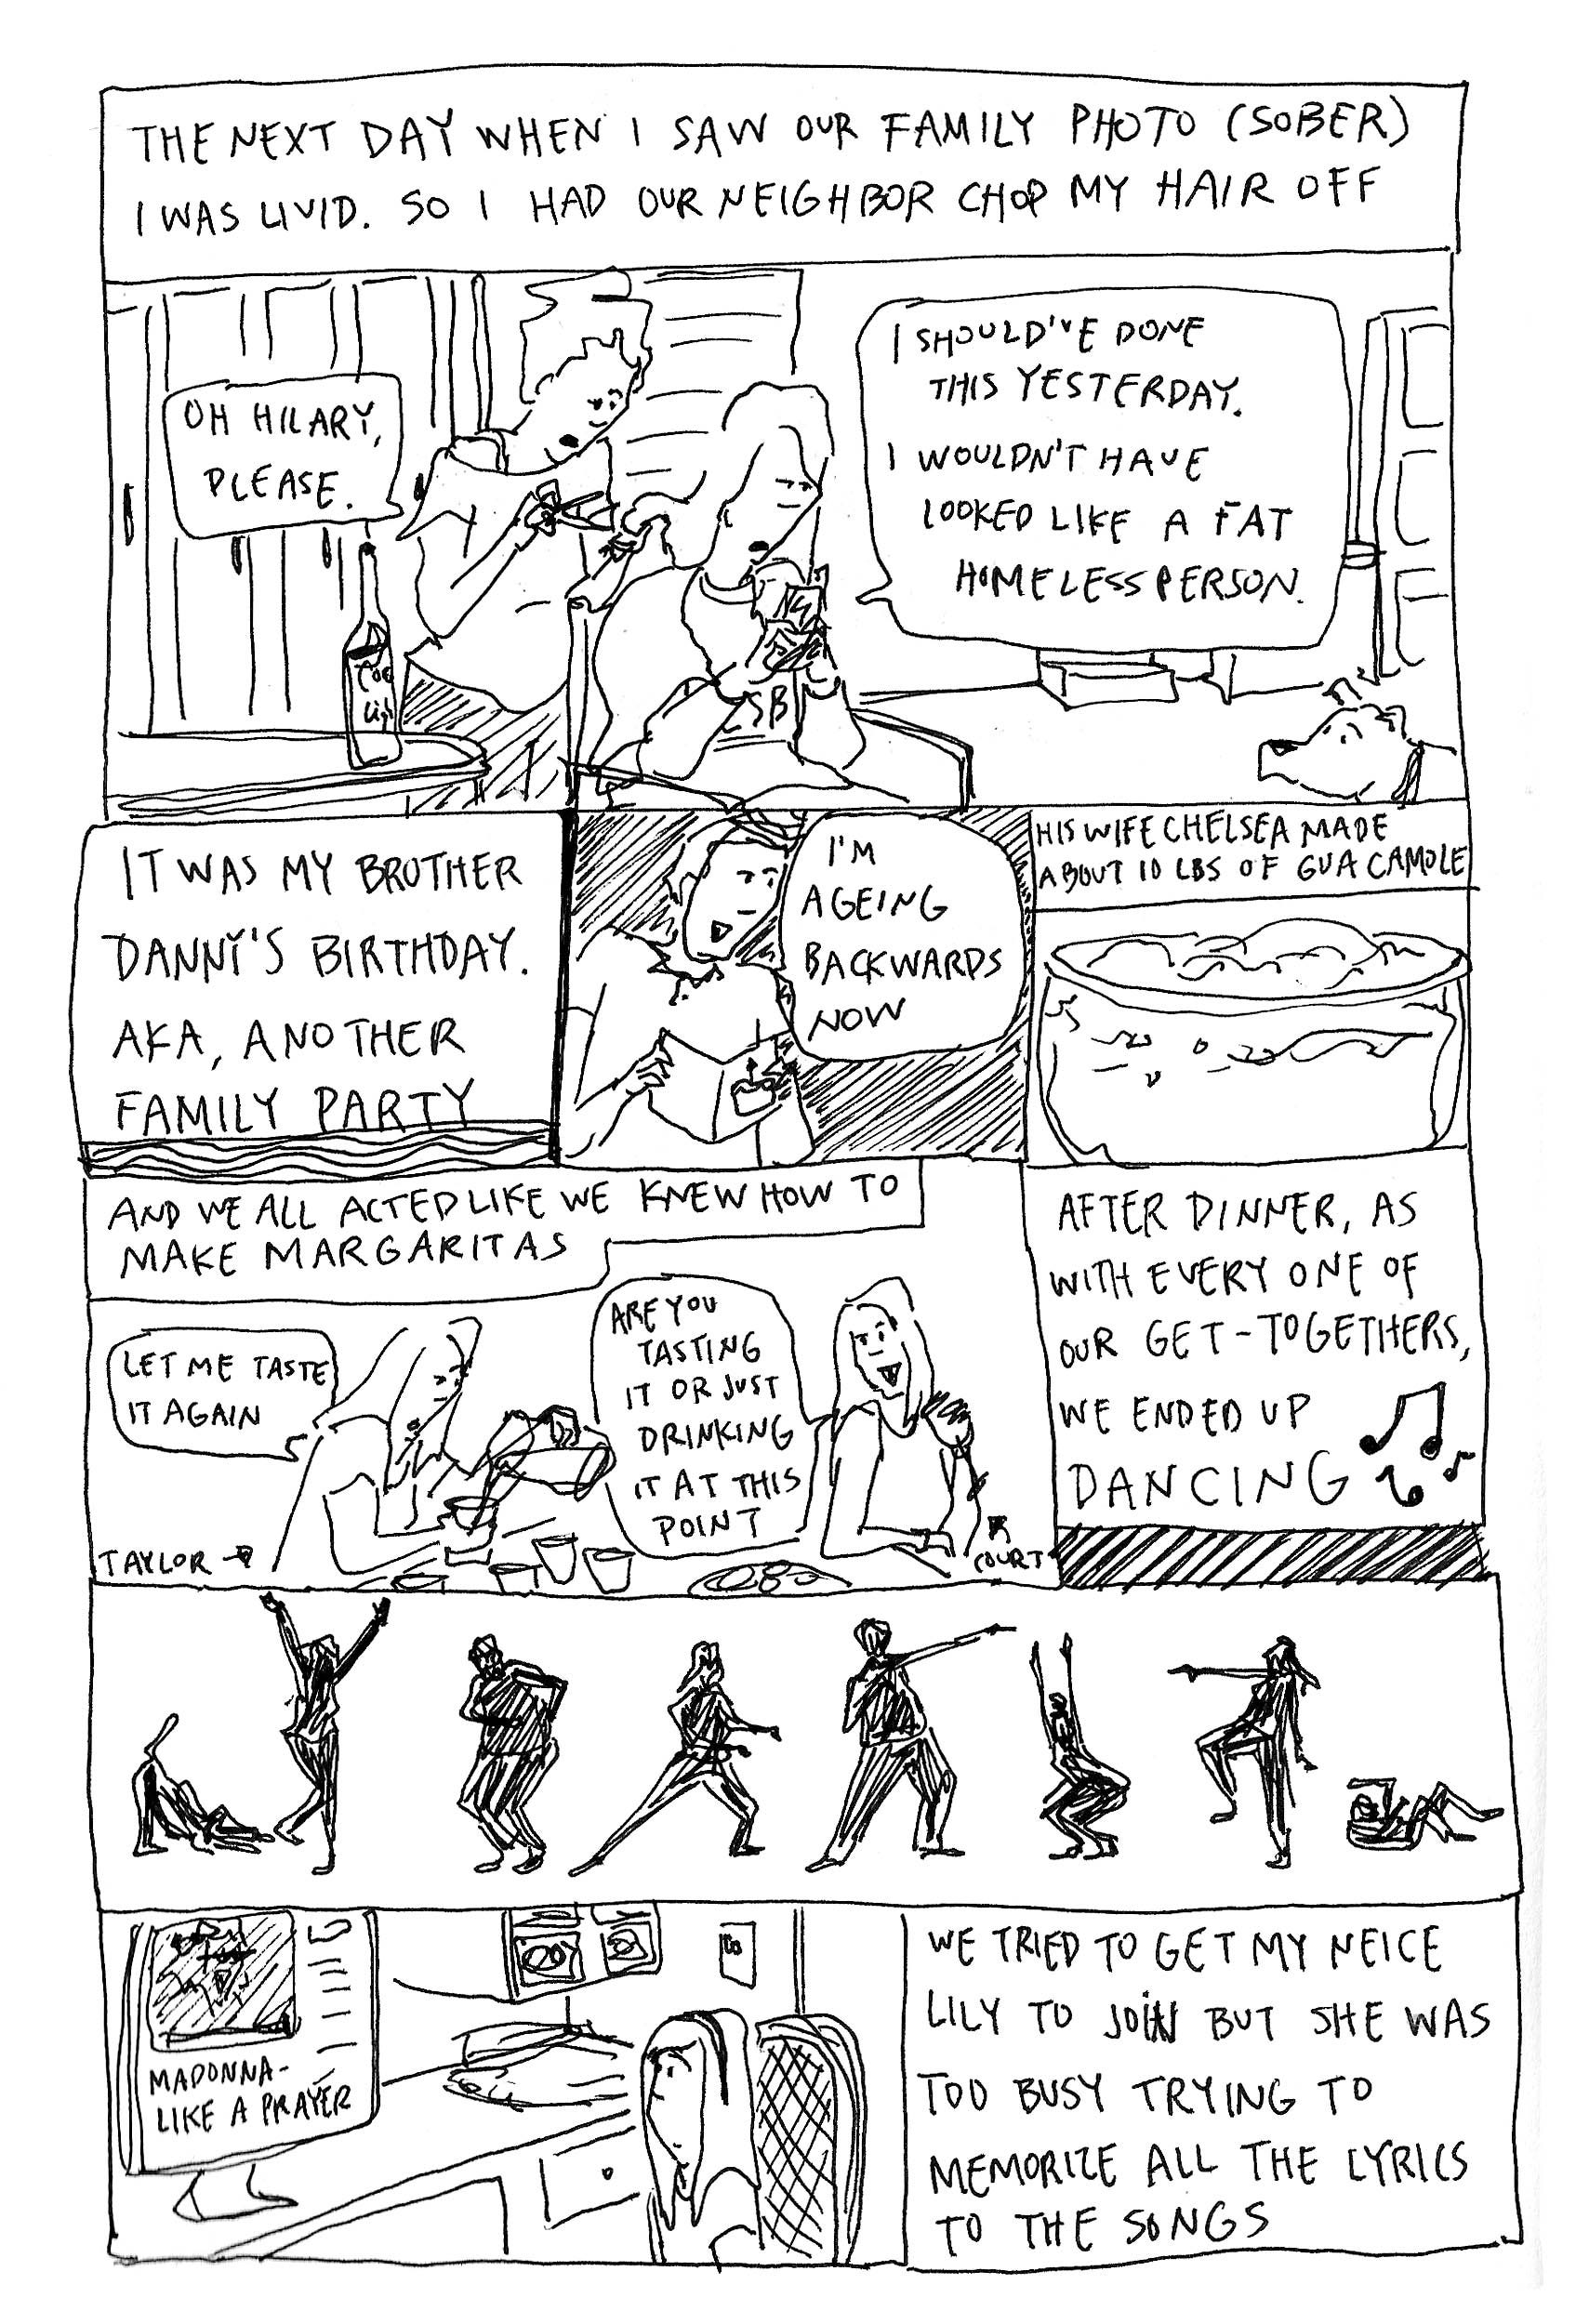 THE NEXT DAY WHEN I SAW OUR FAMILY PHOTO (SOBER)
I WAS LIVID. SO I HAD OUR NEIGHBOR CHOP MY HAIR OFF
OH HILARY,
PLEASE.
I SHOULD'VE DONE
THIS YESTERDAY.
I WOULDN'T HAVE
LOOKED LIKE A FAT
HOMELESS PERSON.
Light
SB
IT WAS MY BROTHER
DANNY'S BIRTHDAY.
AKA, ANOTHER
FAMILY PARTY
I'M
AGEING
BACKWARDS
NOW
HIS WIFE CHELSEA MADE
ABOUT 10 LBS OF GUACAMOLE
AND WE ALL ACTED LIKE WE KNEW HOW TO
MAKE MARGARITAS
LET ME TASTE
IT AGAIN
ARE YOU
TASTING
IT OR JUST
DRINKING
IT AT THIS
POINT
TAYLOR
COURT
AFTER DINNER, AS
WITH EVERY ONE OF
OUR GET-TOGETHERS,
WE ENDED UP
DANCING
MADONNA-
LIKE A PRAYER
WE TRIED TO GET MY NEICE
LILY TO JOIN BUT SHE WAS
TOO BUSY TRYING TO
MEMORIZE ALL THE LYRICS
TO THE SONGS